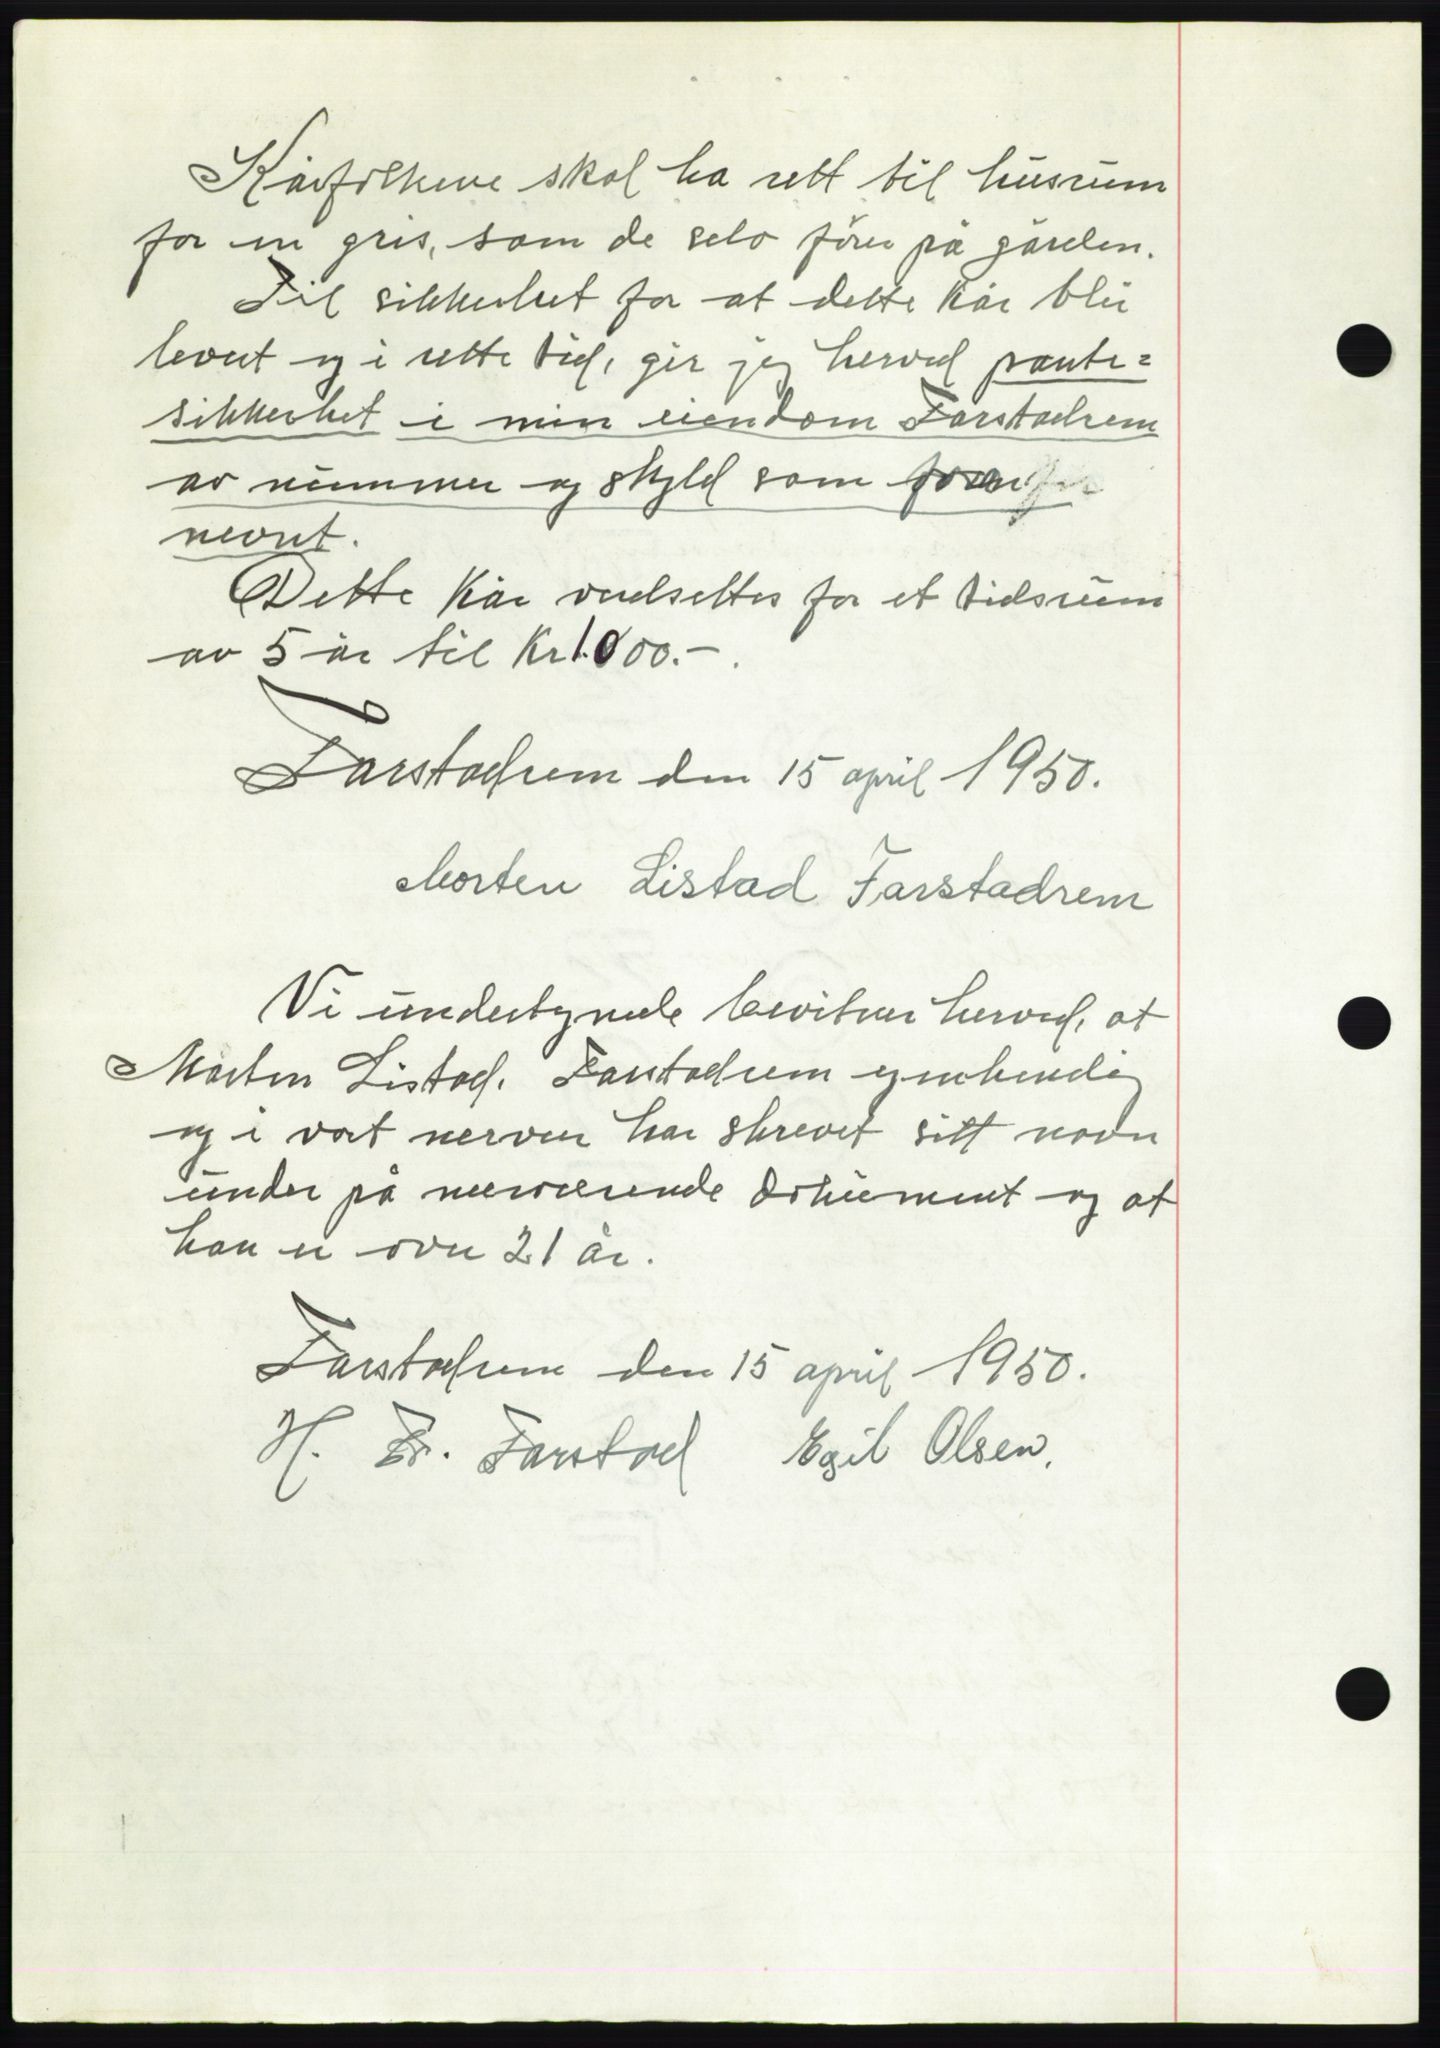 Kårfolkene skal ha rett til husrum
for en gris, som de selv förer på gården.
Til sikkerhet for at dette kår blir
levert og i rette tid, gir jeg herved pante=
sikkerhet i min eiendom Farstadrem
av nummer og skyld som foran
nevnt.
Dette kår verdsettes for et tidsrum
av 5 år til Kr 1.000.-.
Farstadrem den 15 april 1950.
Morten Listad Farstadrem
Vi undertegnede bevitner herved, at
Morten Listad, Farstadrem egenhendig
og i vort nerver har skrevet sitt navn
under på nærværende dokument og at
han er over 21 år.
Farstadrem den 15 april 1950.
H. Fr. Farstad Egil Olsen.